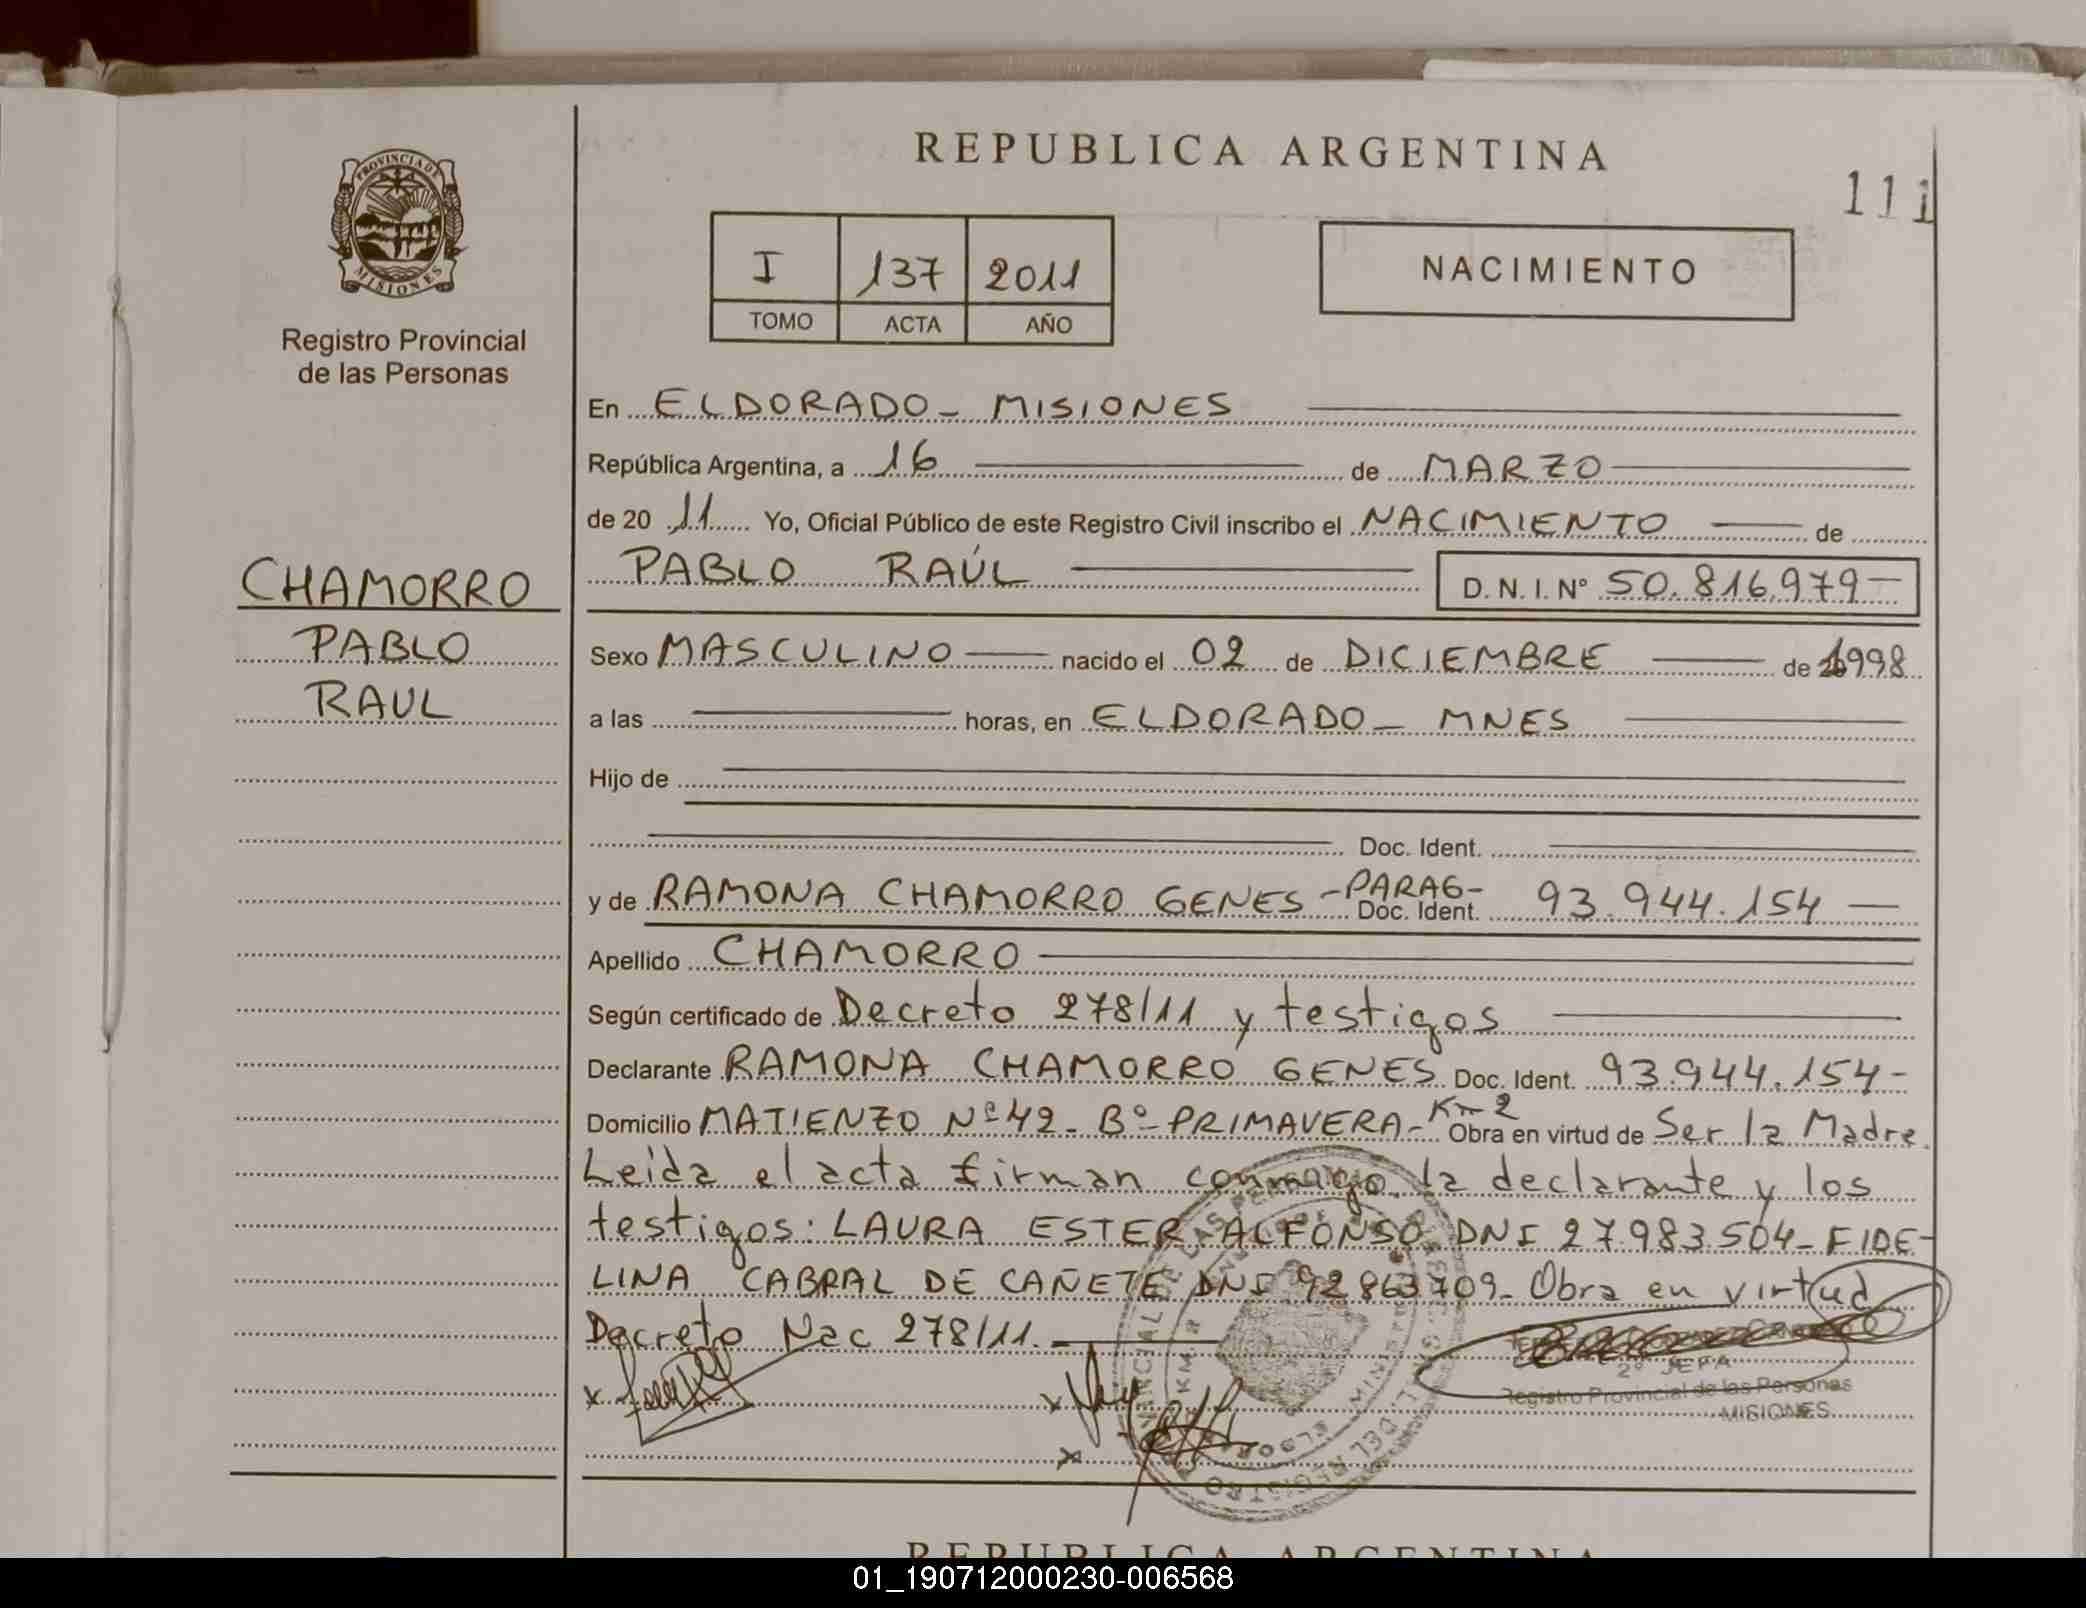 REPUBLICA ARGENTINA
111
PROVINCIA DE
MISIONES
Registro Provincial
de las Personas
I 137 2011
TOMO ACTA AÑO
NACIMIENTO
En ELDORADO - MISIONES
República Argentina, a 16 de MARZO
de 20 11 Yo, Oficial Público de este Registro Civil inscribo el NACIMIENTO de
PABLO RAÚL D. N. I. Nº 50.816.979
CHAMORRO
PABLO
RAUL
Sexo MASCULINO nacido el 02 de DICIEMBRE de 1998
a las horas, en ELDORADO - MNES
Hijo de
Doc. Ident.
y de RAMONA CHAMORRO GENES - PARAG - Doc. Ident. 93.944.154
Apellido CHAMORRO
Según certificado de Decreto 278/11 y testigos
Declarante RAMONA CHAMORRO GENES Doc. Ident. 93.944.154-
Domicilio MATIENZO Nº 42 - Bº PRIMAVERA - Km 2 Obra en virtud de Ser la Madre.
Leida el acta firman conmigo la declarante y los
testigos: LAURA ESTER ALFONSO DNI 27.983.504 - FIDE-
LINA CABRAL DE CAÑETE DNI 92863709 - Obra en virtud
Decreto Nac 278/11.
2º JEFA
Registro Provincial de las Personas
MISIONES
REPUBLICA ARGENTINA
01_190712000230-006568